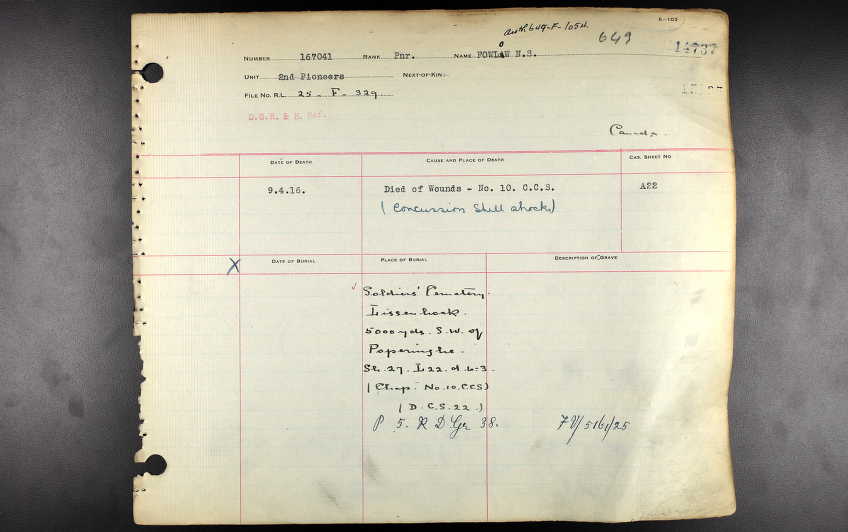 Auth. 649-F-1054.
E-103
649
14737
NUMBER 167041 RANK Pnr. NAME FOWLOW N.S.
UNIT 2nd Pioneers NEXT-OF-KIN:-
FILE NO. R.L. 25 - F - 329
D.G.R. & E. Ref.
Canada.
DATE OF DEATH CAUSE AND PLACE OF DEATH CAS. SHEET NO
9.4.16. Died of Wounds - No. 10. C.C.S. A22
(Concussion Shell shock)
X DATE OF BURIAL PLACE OF BURIAL DESCRIPTION OF GRAVE
Soldiers' Cemetery.
Lissenhoek.
5000 yds. S.W. of
Poperinghe.
Sh. 27. L22. d. 6.3.
(Chap. No. 10. CCS)
(D.C.S. 22.)
P 5. R D Gr 38.